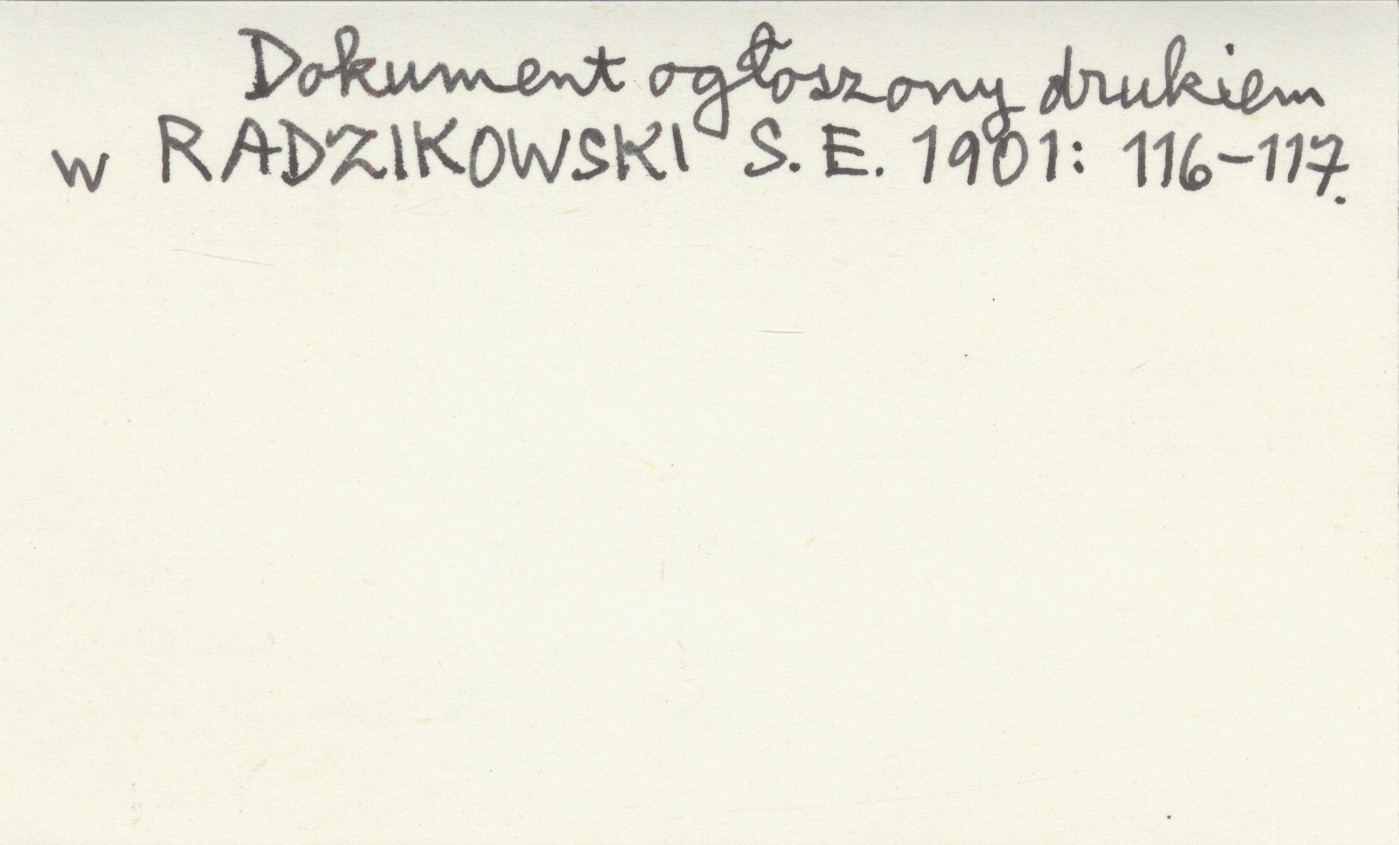 Dokument ogłoszony drukiem
w RADZIKOWSKI S. E. 1901: 116-117.